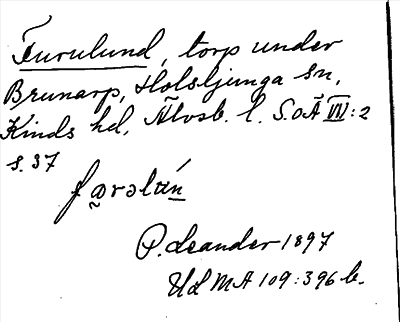 Furulund, torp under
Brunarp, Holsljunga sn,
Kinds hd, Älvsb. l. S.o.Ä VII:2
s. 37
P. Leander 1897
ULMA 109:396 b.